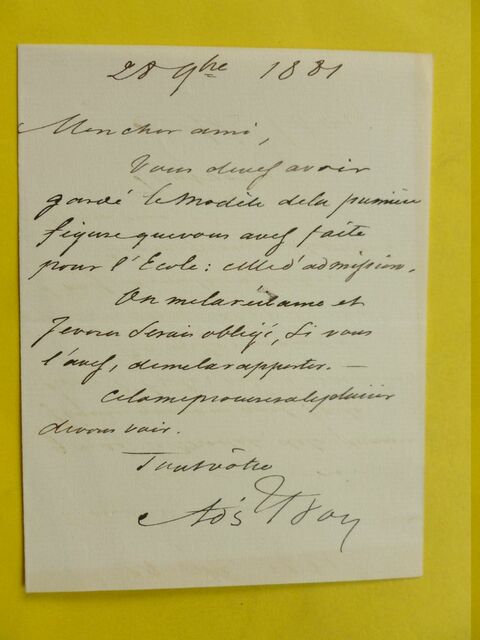 28 9bre 1881
Mon cher ami,
Vous devez avoir
gardé le modèle de la première
figure que vous avez faite
pour l'Ecole : celle d'admission.
On me la réclame et
je vous serais obligé, si vous
l'avez, de me la rapporter. —
Cela me procurera le plaisir
de vous voir.
Tout vôtre
Ad's